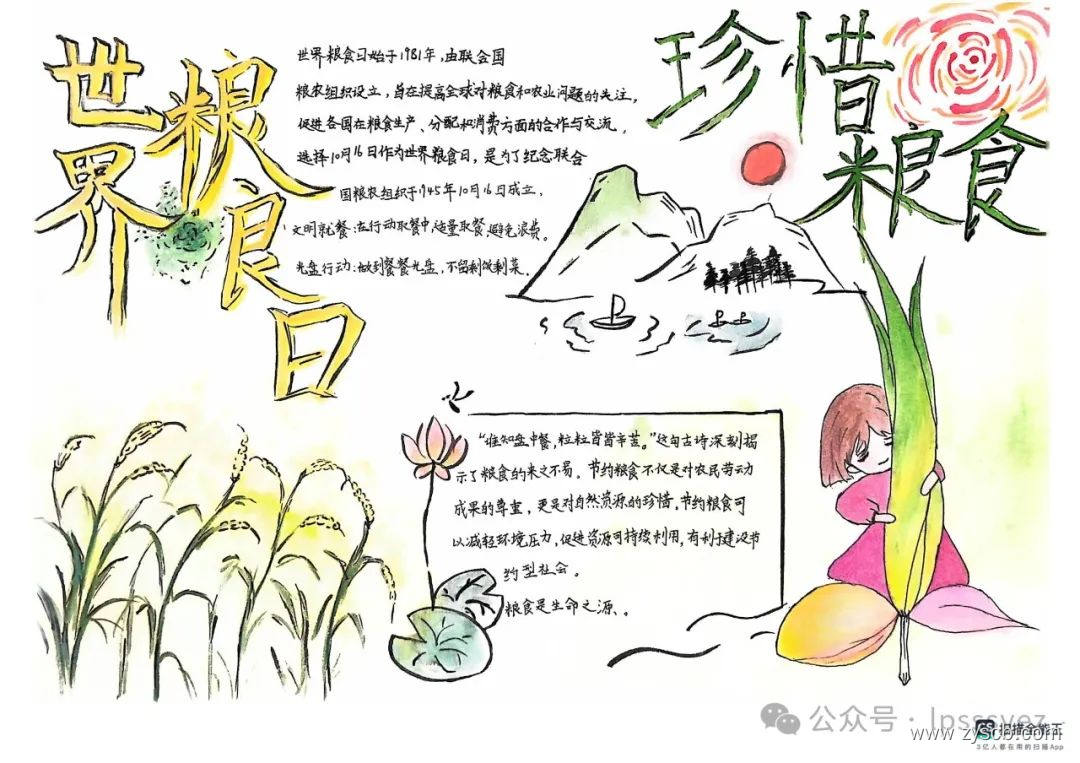 世界粮食日
世界粮食日始于1981年,由联合国
粮农组织设立,旨在提高全球对粮食和农业问题的关注,
促进各国在粮食生产、分配和消费方面的合作与交流,
选择10月16日作为世界粮食日,是为了纪念联合
国粮农组织于1945年10月16日成立,
文明就餐:在行动取餐中,适量取餐,避免浪费。
光盘行动:做到餐餐光盘,不留剩饭剩菜.
珍惜
粮食
“谁知盘中餐,粒粒皆皆辛苦。”这句古诗深刻揭
示了粮食的来之不易。节约粮食不仅是对农民劳动
成果的尊重,更是对自然资源的珍惜,节约粮食可
以减轻环境压力,促进资源可持续利用,有利于建设节
约型社会。
粮食是生命之源、
公众号·lpsssyez
CS扫描全能王
www.zyscb.com
3亿人都在用的扫描App